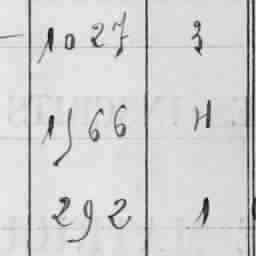 1027 3
1566 H
292 1